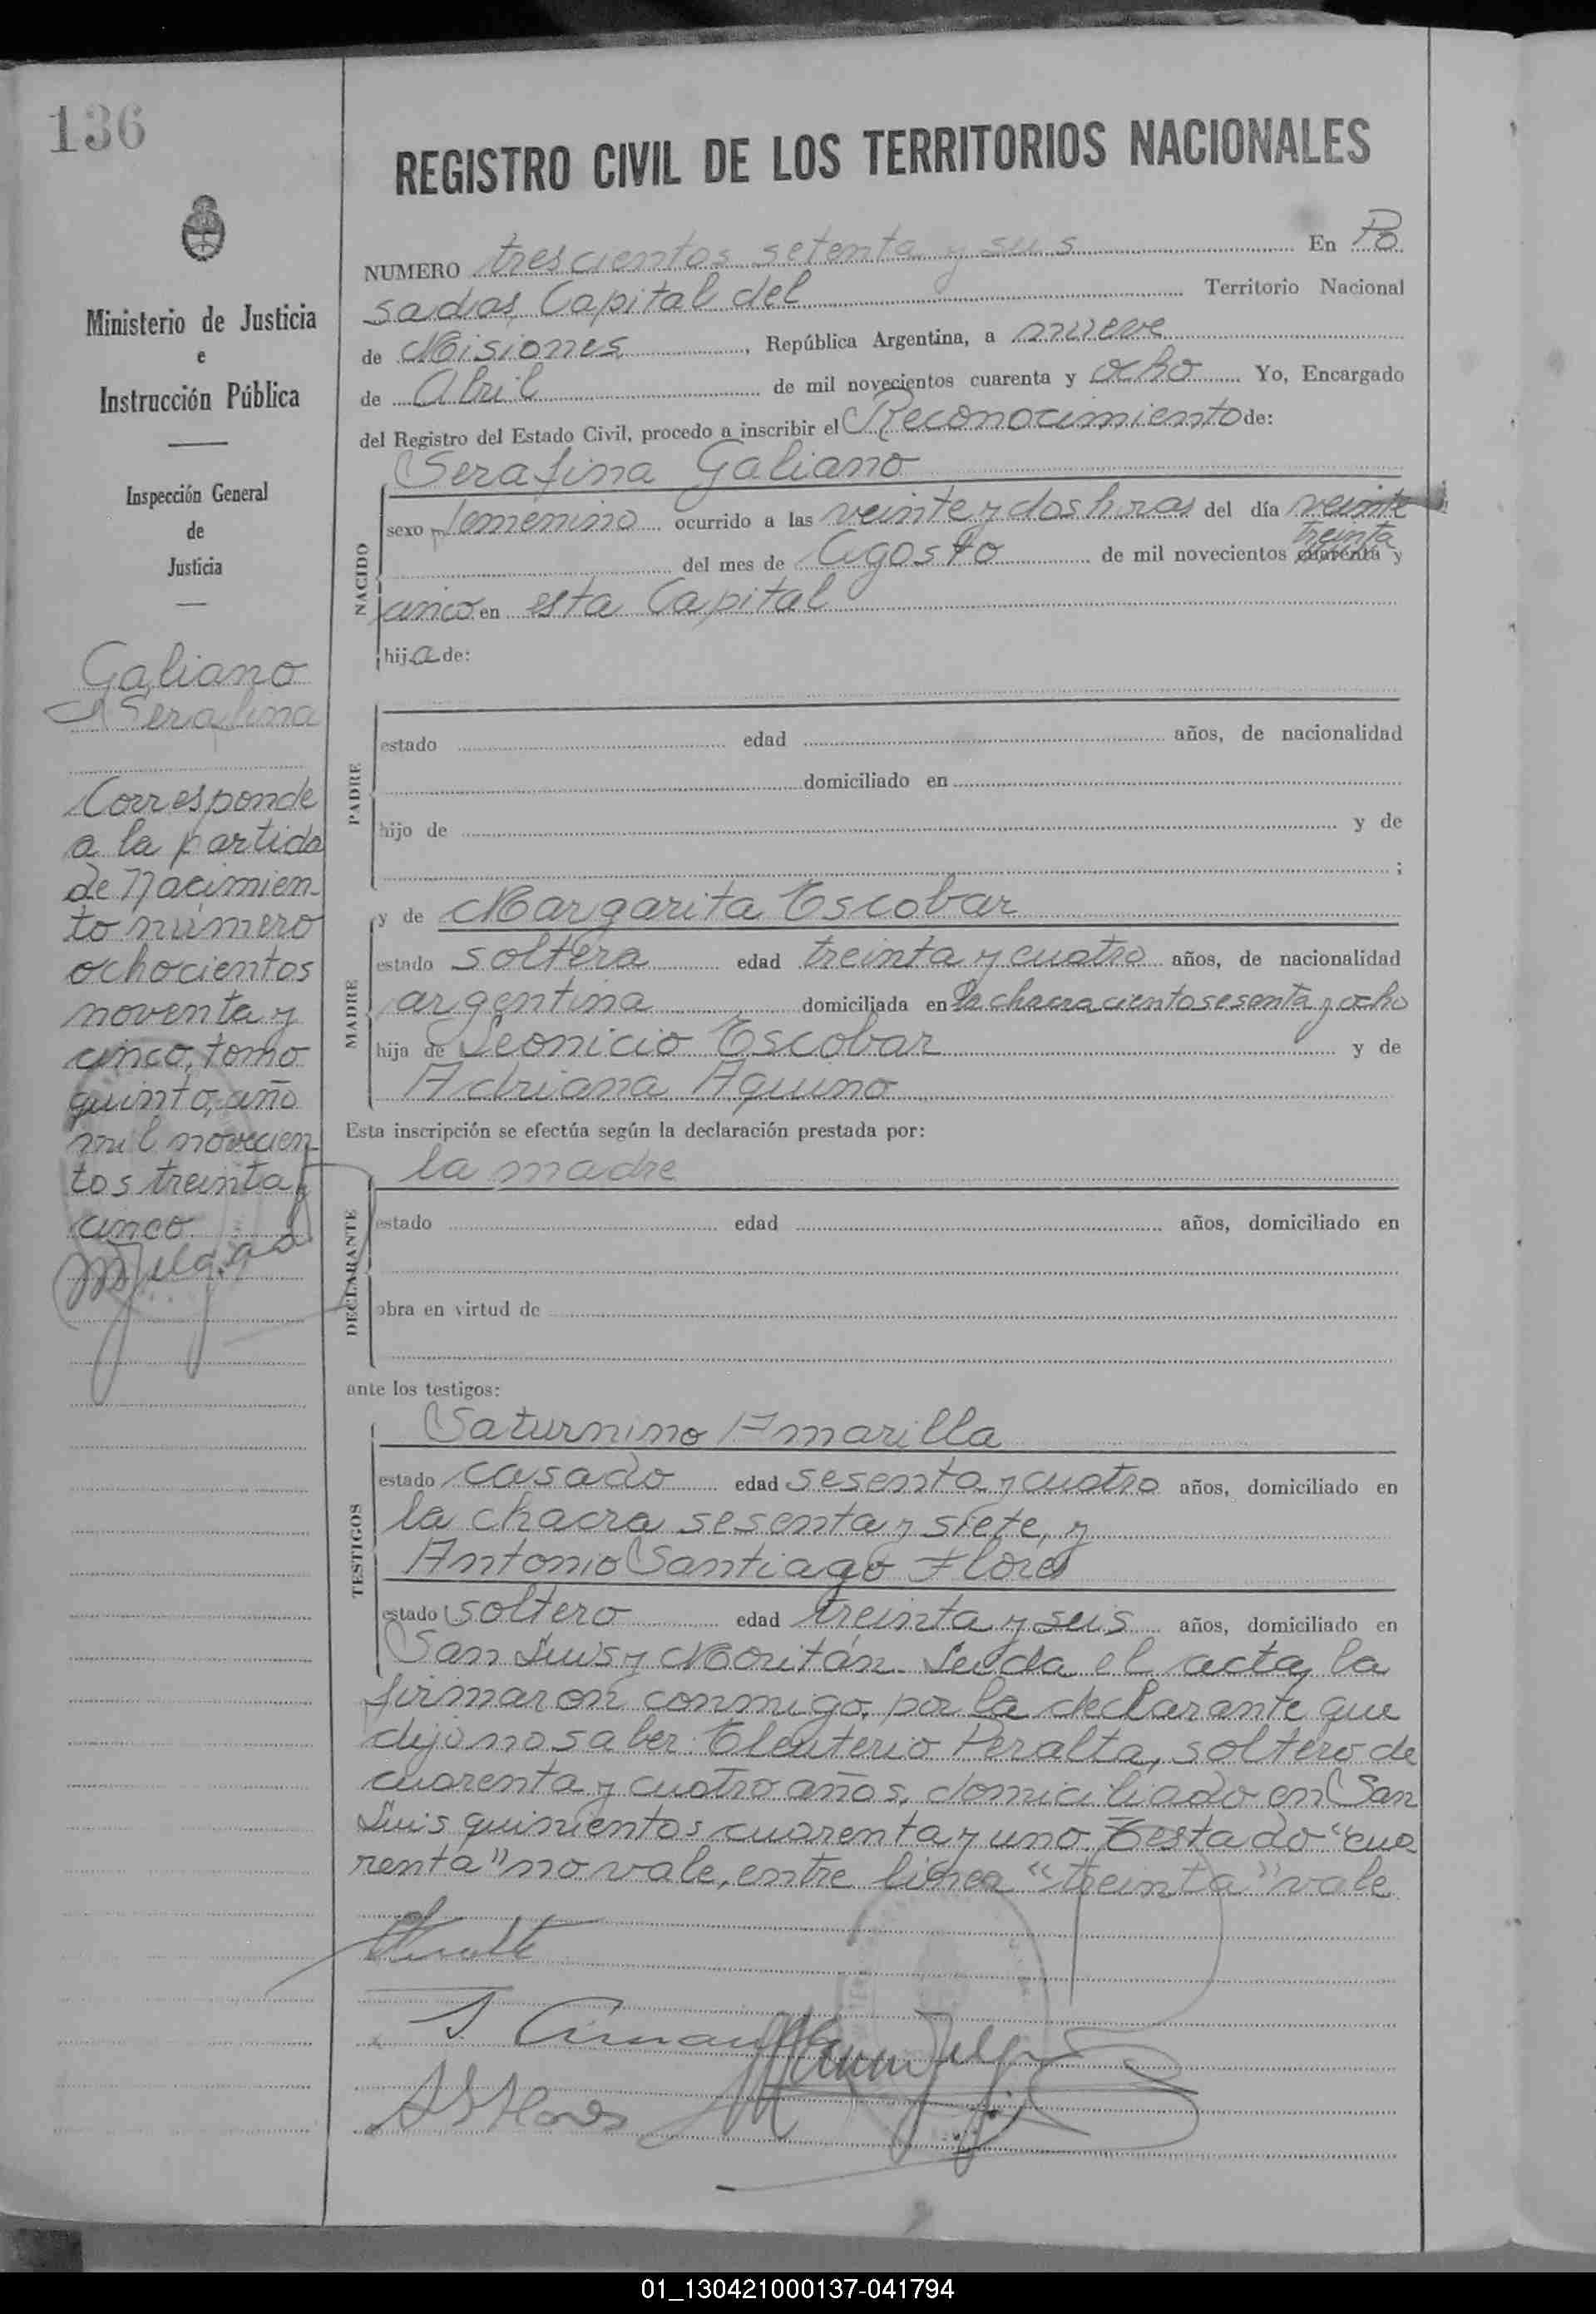 136
Ministerio de Justicia
e
Instrucción Pública
Inspección General
de
Justicia
Galiano
Serafina
Corresponde
a la partida
de Nacimien-
to número
ochocientos
noventa y
cinco, tomo
quinto, año
mil novecien-
tos treinta y
cinco
REGISTRO CIVIL DE LOS TERRITORIOS NACIONALES
NUMERO trescientos setenta y seis En Po
sadas, Capital del Territorio Nacional
de Misiones, República Argentina, a nueve
de Abril de mil novecientos cuarenta y ocho Yo, Encargado
del Registro del Estado Civil, procedo a inscribir el Reconocimiento de:
Serafina Galiano
NACIDO
sexo femenino ocurrido a las veinte y dos horas del día veinte
treinta
del mes de Agosto de mil novecientos cuarenta y
cinco en esta Capital
hija de:
PADRE
estado edad años, de nacionalidad
domiciliado en
hijo de y de
;
MADRE
y de Margarita Escobar
estado soltera edad treinta y cuatro años, de nacionalidad
argentina domiciliada en la chacra ciento sesenta y ocho
hija de Leonicio Escobar y de
Adriana Aquino
Esta inscripción se efectúa según la declaración prestada por:
la madre
DECLARANTE
estado edad años, domiciliado en
obra en virtud de
ante los testigos:
TESTIGOS
Saturnino Amarilla
estado casado edad sesenta y cuatro años, domiciliado en
la chacra sesenta y siete, y
Antonio Santiago Flores
estado soltero edad treinta y seis años, domiciliado en
San Luis y Moritán. Leída el acta, la
firmaron conmigo, por la declarante que
dijo no saber: Eleuterio Peralta, soltero de
cuarenta y cuatro años, domiciliado en San
Luis quinientos cuarenta y uno. Testado "cua
renta" no vale, entre línea "treinta" vale
A S Flores
01_130421000137-041794